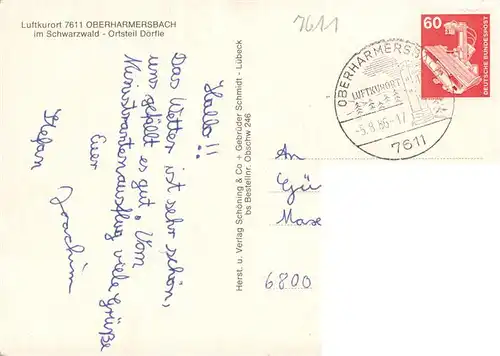 Luftkurort 7611 OBERHARMERSBACH
im Schwarzwald - Ortsteil Dörfle
7611
Hallo!!
Das Wetter ist sehr schön,
uns gefällt es gut. Vom
Ministrantenausflug viele Grüße
Euer
Stefan Joachim
Herst. u. Verlag Schöning & Co + Gebrüder Schmidt - Lübeck
bs Bestellnr. Obschw 246
OBERHARMERSB
LUFTKURORT
-5.8.86-17
7611
60
DEUTSCHE BUNDESPOST
An
Gü
Maxe
6800